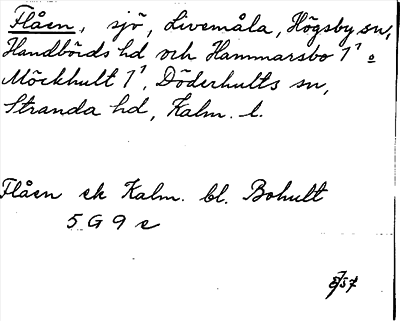 Flåen, sjö, Livemåla, Högsby sn,
Handbörds hd och Hammarsbo 1¹ o
Möckhult 1¹, Döderhults sn,
Stranda hd, Kalm. l.
Flåen ek Kalm. bl. Bohult
5 G 9 e